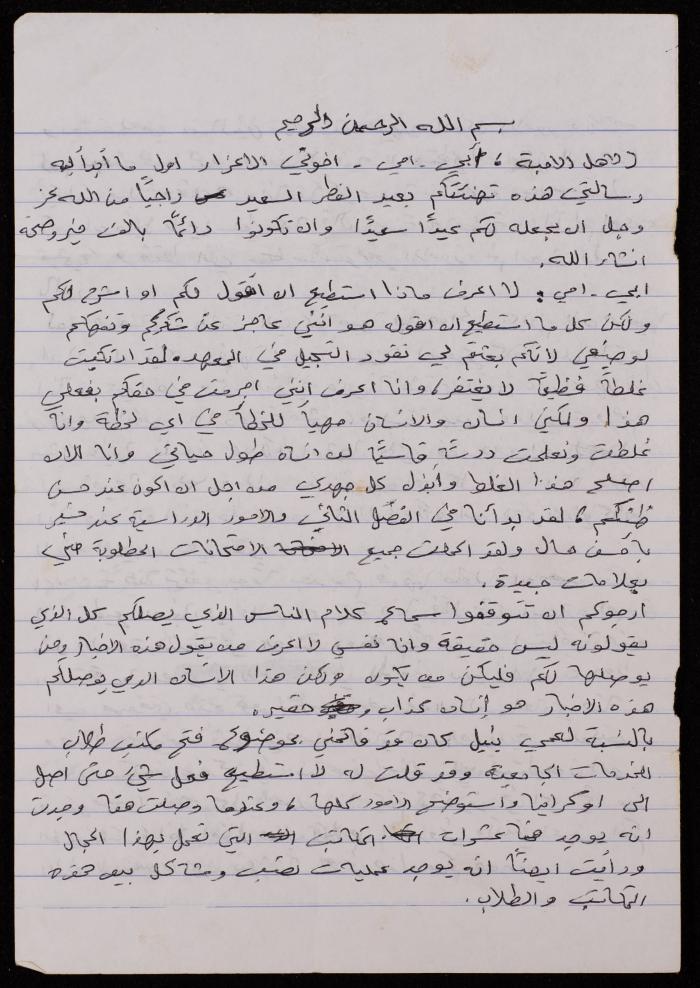 بسم الله الرحمن الرحيم
الاهل الاحبة ، أبي - امي - اخوتي الاعزاء اول ما أبدأ به
رسالتي هذه تهنئتكم بعيد الفطر السعيد راجيًا من الله عز
وجل ان يجعله لكم عيدًا سعيدًا وان تكونوا دائمًا بالف خير وصحة
انشاء الله.
ابي - امي : لا اعرف ماذا استطيع ان أقول لكم او اشرح لكم
ولكن كل ما استطيع ان اقوله هو انني عاجز عن شكركم وتفهمكم
لوضعي لانكم بعثتم لي نقود التسجيل في المعهد. لقد ارتكبت
غلطًا فظيعًا لا يغتفر ، وانا اعرف انني اجرمت في حقكم بفعلي
هذا ولكنني انسان والانسان مهيأ للخطأ في اي لحظة وانا
غلطت وتعلمت درسًا قاسيًا لن انساه طول حياتي وانا الان
اصلح هذا الغلط وأبذل كل جهدي من اجل ان اكون عند حسن
ظنكم ، لقد بدأنا في الفصل الثاني والامور الدراسية عند
بأحسن حال ولقد اكملت جميع الامتحانات المطلوبة مني
بعلامات جيدة .
ارجوكم ان تتوقفوا سماع كلام الناس الذي يصلكم كل الذي
يقولونه ليس حقيقة وانا نفسي لا اعرف من يقول هذه الاخبار ومن
يوصلها لكم فليكن من يكون ولكن هذا الانسان الذي يوصلكم
هذه الاخبار هو إنسان كذاب وحقير.
بالنسبة لعمي نبيل كان قد فاتحني بموضوع فتح مكتب طلاب
للخدمات الجامعية وقد قلت له لا استطيع فعل شيء حتى اصل
الى اوكرانيا واستوضح الامور كلها ، وعندما وصلت هنا وجدت
انه يوجد هنا عشرات المكاتب التي تعمل بهذا المجال
ورأيت ايضًا انه يوجد عمليات نصب ومشاكل بين هذه
المكاتب والطلاب .